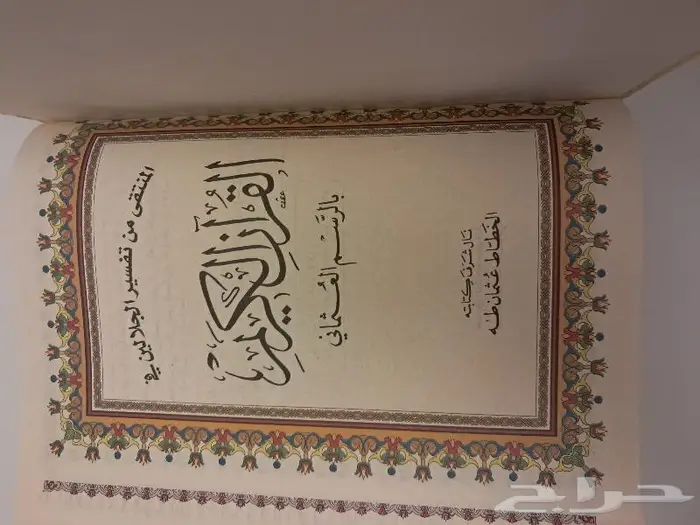 المنتقى من تفسير الجلالين في
القرآن الكريم
بالرسم العثماني
نال شرف كتابته
الخطاط عثمان طه
حراج